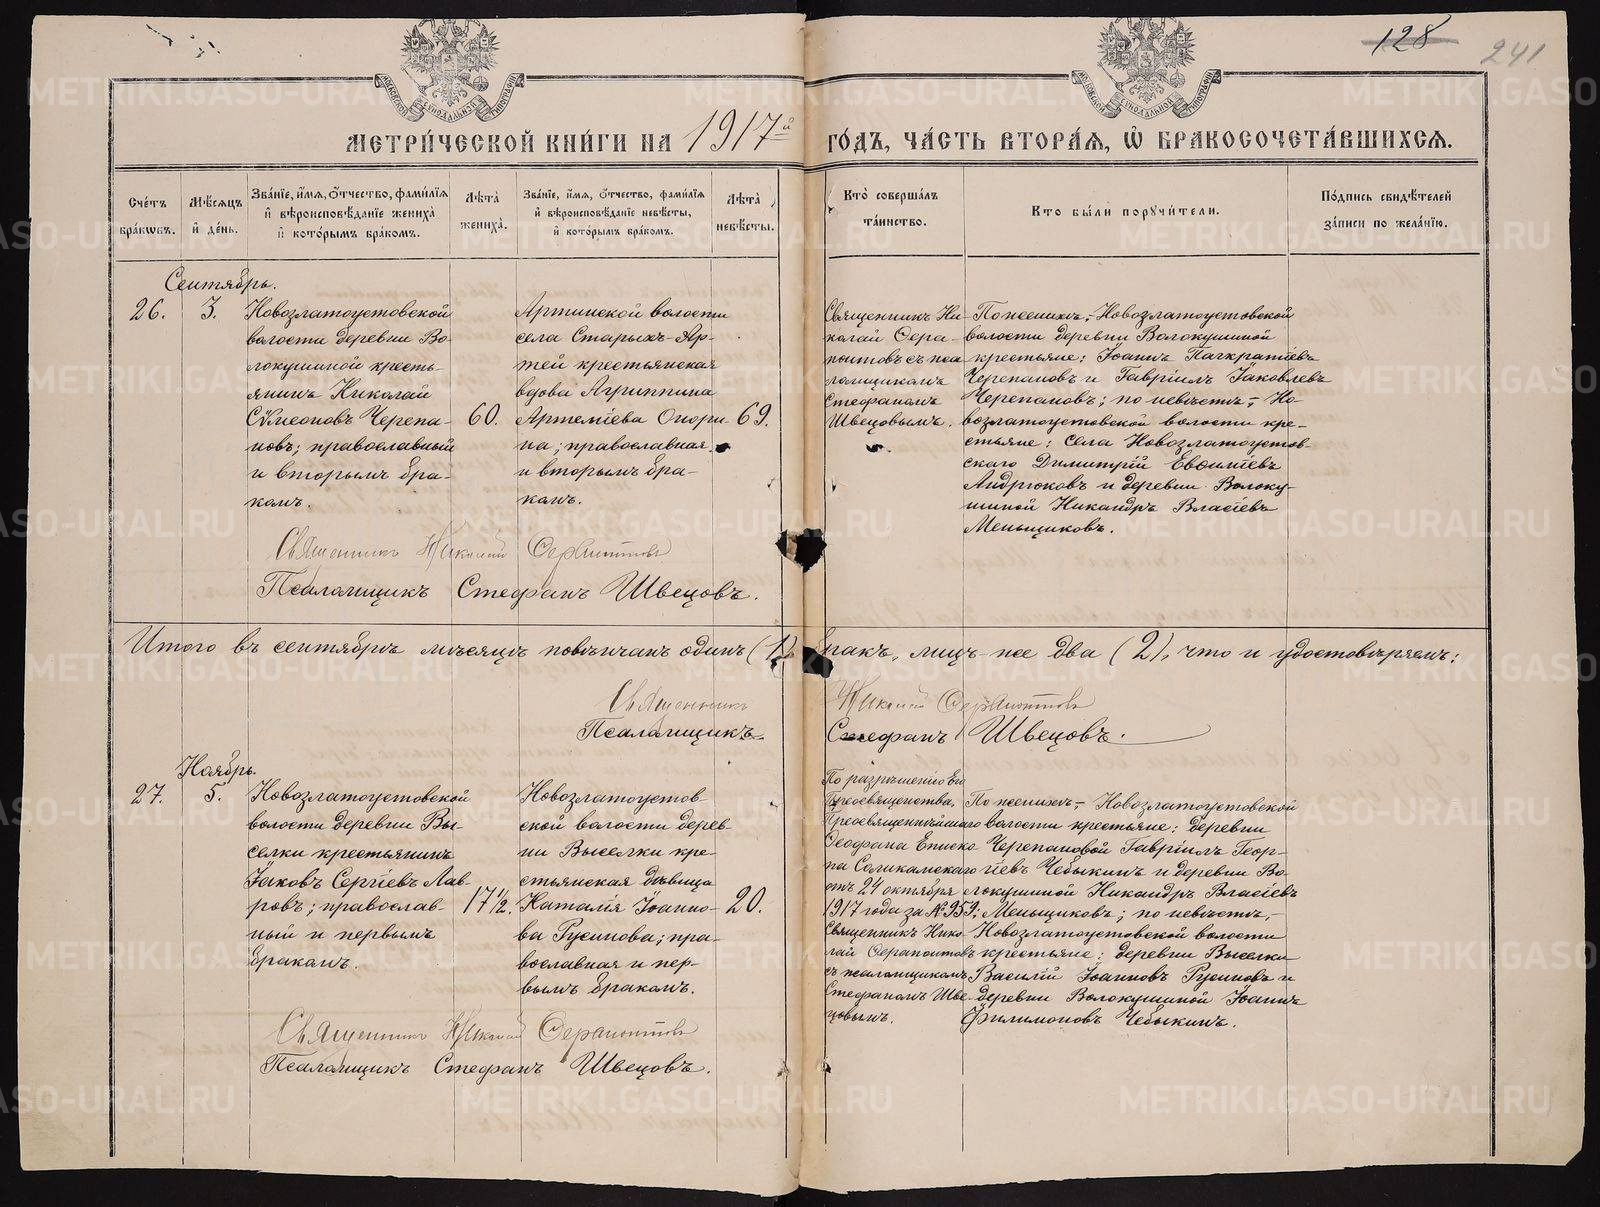 128
241
МЕТРИ́ЧЕСКОЙ КНИ́ГИ НА 1917й ГО́ДЪ, ЧА́СТЬ ВТОРА́Я, Ѡ҆ БРАКОСОЧЕТА́ВШИХСЯ.
Сче́тъ бра́кѡвъ.
Мѣ́сяцъ и҆ де́нь.
Зва́нїе, и҆́мя, ѻ҆́тчество, фами́лїя и҆ вѣроисповѣ́данїе жениха̀ и҆ кото́рымъ бра́комъ.
Лѣта̀ жениха̀.
Зва́нїе, и҆́мя, ѻ҆́тчество, фами́лїя и҆ вѣроисповѣ́данїе невѣ́сты, и҆ кото́рымъ бра́комъ.
Лѣта̀ невѣ́сты.
Кто̀ соверша́лъ та́инство.
Кто бы́ли порꙋчи́тели.
По́дпись свидѣ́телей за́писи по жела́нїю.
Сентябрь.
26.
3.
Новозлатоустовской
волости деревни Во-
локушиной кресть-
янинъ Николай
Сѵмеоновъ Черепа-
новъ; православный
и вторымъ бра-
комъ.
60.
Артинской волости
села Старыхъ-Ар-
тей крестьянская
вдова Агриппина
Артемиева Опори-
на; православная
и вторымъ бра-
комъ.
69.
Священникъ Ни-
колай Сера-
понтовъ съ пса
ломщикомъ
Стефаномъ
Швецовымъ.
По женихѣ,- Новозлатоустовской
волости деревни Волокушиной
крестьяне: Іоаннъ Панкратіевъ
Черепановъ и Гавріилъ Іаковлевъ
Черепановъ; по невѣстѣ,- Но-
возлатоустовской волости кре-
стьяне: села Новозлатоустов-
скаго Димитрій Евоимїевъ
Андрюковъ и деревни Волоку-
шиной Никандръ Власіевъ
Меньщиковъ.
Священникъ Николай Серапонтовъ
Псаломщикъ Стефанъ Швецовъ.
Итого въ сентябрѣ мѣсяцѣ повѣнчанъ одинъ (1) бракъ, лицъ же два (2), что и удостовѣряемъ:
Священникъ Николай Серапонтовъ
Псаломщикъ Стефанъ Швецовъ.
Ноябрь.
27.
5.
Новозлатоустовской
волости деревни Вы-
селки крестьянинъ
Іаковъ Сергіевъ Лав-
ровъ; православ-
ный и первымъ
бракомъ.
17 1/2.
Новозлатоустов-
ской волости дерев-
ни Выселки кре-
стьянская дѣвица
Наталія Іоанно-
ва Русинова; пра-
вославная и пер-
вымъ бракомъ.
20.
По разрѣшенію Его
Преосвященства,
Преосвященнѣйшаго
Ѳеофана Еписко
па Соликамскаго
отъ 24 октября
1917 года за № 959;
Священникъ Нико
лай Серапонтовъ
съ псаломщикомъ
Стефаномъ Шве-
цовымъ.
По женихѣ,- Новозлатоустовской
волости крестьяне: деревни
Черепановой Гавріилъ Геор-
гіевъ Чебыкинъ и деревни Во-
локушиной Никандръ Власіевъ
Меньщиковъ; по невѣстѣ,-
Новозлатоустовской волости
крестьяне: деревни Выселки
Василій Іоанновъ Русиновъ и
деревни Волокушиной Іоаннъ
Филимоновъ Чебыкинъ.
Священникъ Николай Серапонтовъ
Псаломщикъ Стефанъ Швецовъ.
METRIKI.GASO-URAL.RU